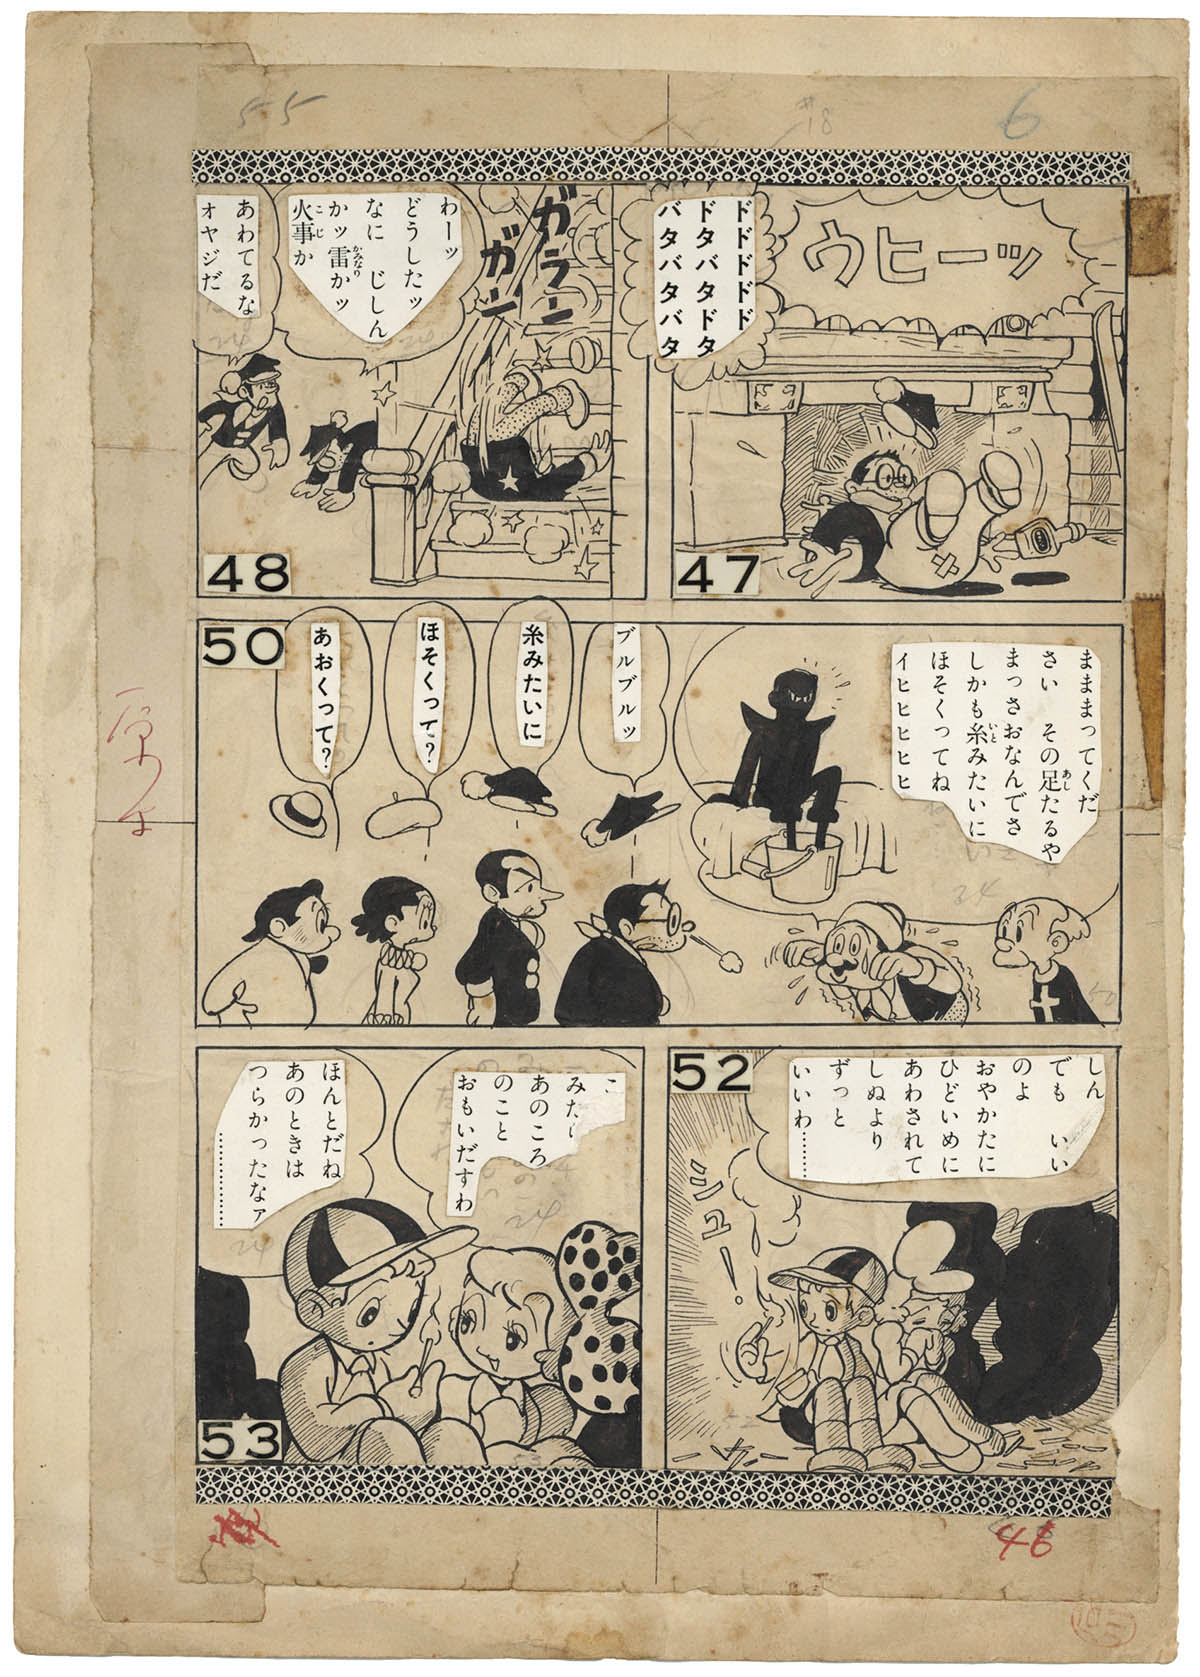 55
#18
6
ウヒーッ
ドドドドドド
ドタバタドタ
バタバタバタ
47
ガラーン
ガーン
わーッ
どうしたッ
なに じしん
かッ雷かッ
かみなり
火事か
こじ
あわてるな
オヤジだ
48
まままってくだ
さい その足たるや
あし
まっさおなんでさ
しかも糸みたいに
いと
ほそくってね
イヒヒヒヒヒ
ブルブルッ
糸みたいに
ほそくって?
あおくって?
50
しん
でも いい
のよ
おやかたに
ひどいめに
あわされて
しぬより
ずっと
いいわ………
シュー!
52
こ
みた
あのころ
のこと
おもいだすわ
ほんとだね
あのときは
つらかったなァ
…………………
53
46